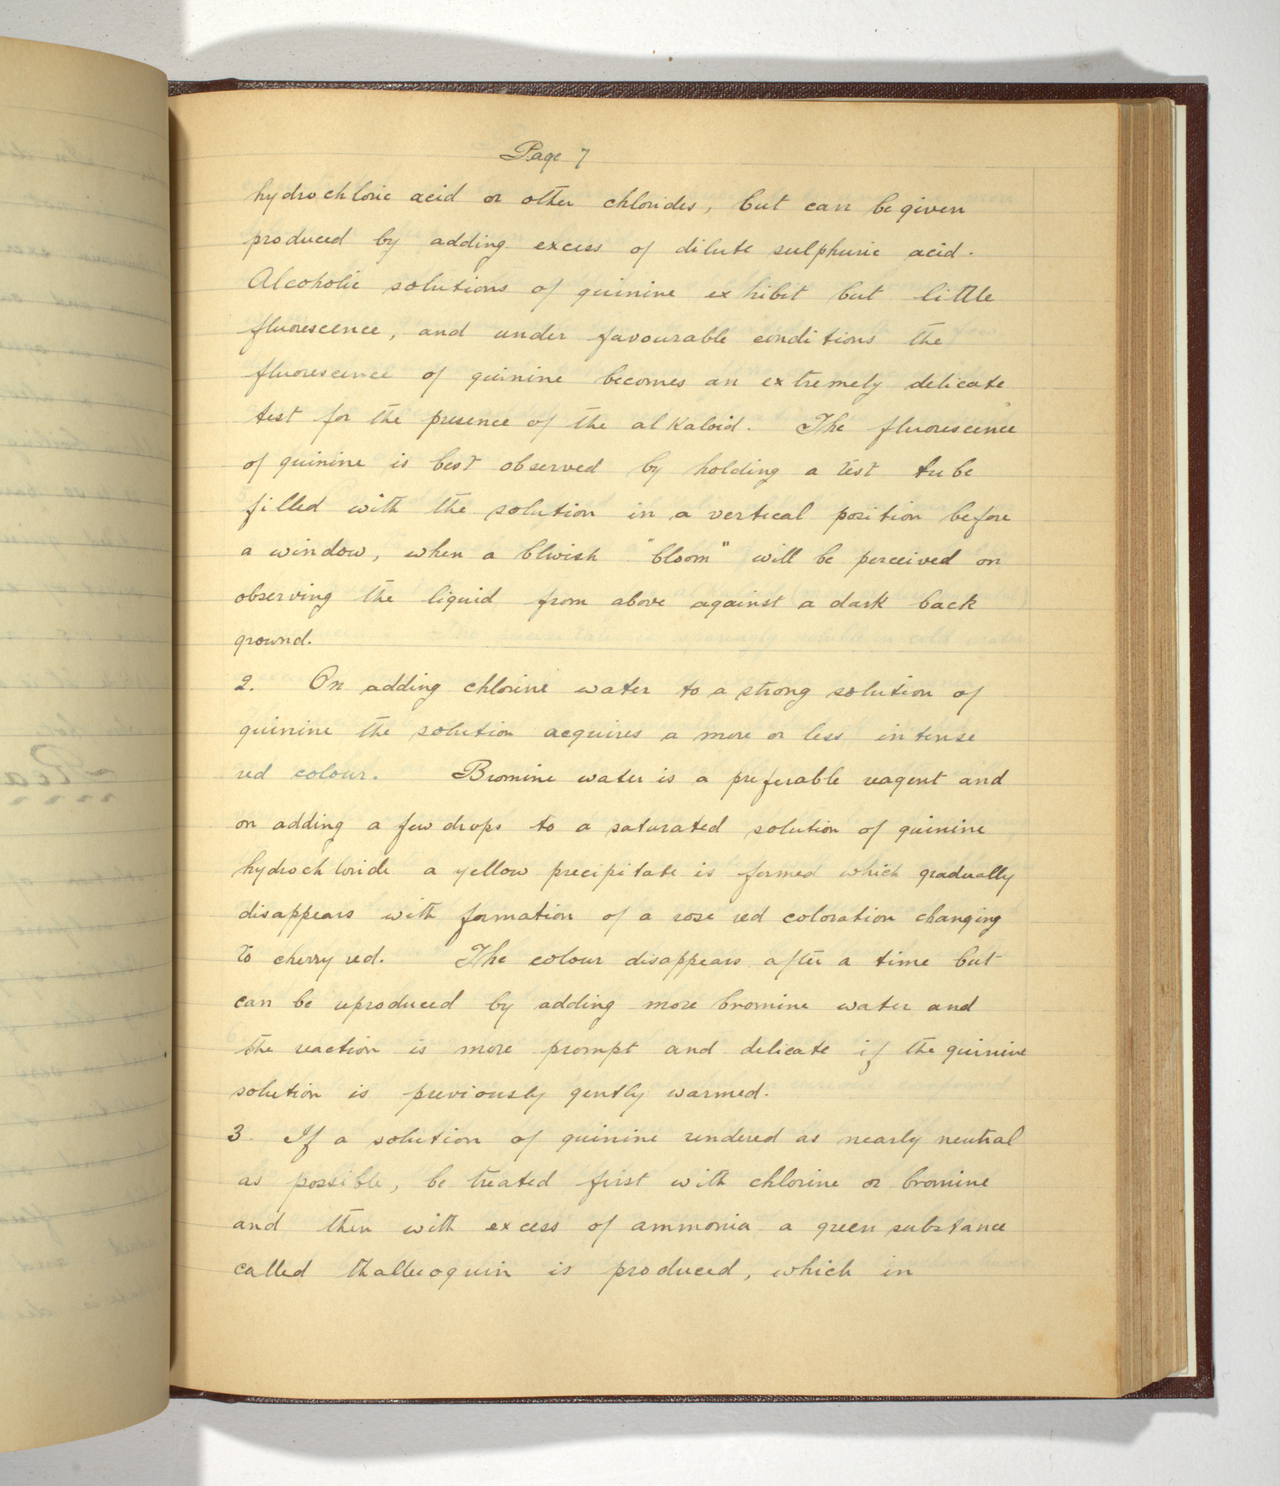 Page 7
hydrochloric acid or other chlorides, but can be given
produced by adding excess of dilute sulphuric acid.
Alcoholic solutions of quinine exhibit but little
fluorescence, and under favourable conditions the
fluorescence of quinine becomes an extremely delicate
test for the presence of the alkaloid. The fluorescence
of quinine is best observed by holding a test tube
filled with the solution in a vertical position before
a window, when a bluish "bloom" will be perceived on
observing the liquid from above against a dark back
ground.
2. On adding chlorine water to a strong solution of
quinine the solution acquires a more or less intense
red colour. Bromine water is a preferable reagent and
on adding a few drops to a saturated solution of quinine
hydrochloride a yellow precipitate is formed which gradually
disappears with formation of a rose red coloration changing
to cherry red. The colour disappears after a time but
can be reproduced by adding more bromine water and
the reaction is more prompt and delicate if the quinine
solution is previously gently warmed.
3. If a solution of quinine rendered as nearly neutral
as possible, be treated first with chlorine or bromine
and then with excess of ammonia a green substance
called thalleoquin is produced, which in